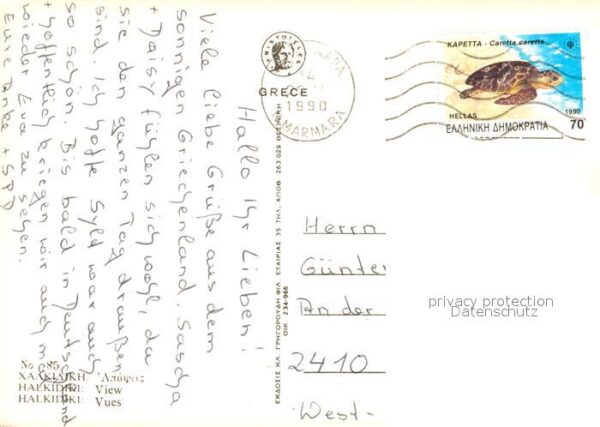 Hallo Ihr Lieben!
Viele liebe Grüße aus dem
sonnigen Griechenland, Sascha
+ Daisy fühlen sich wohl, da
sie den ganzen Tag draußen
sind. Ich hoffe Sylt war auch
so schön. Bis bald in Deutschland
+ hoffentlich kriegen wir auch mal
wieder Eva zu sehen.
Eure Anke +
ΚΑΡΕΤΤΑ - Caretta caretta
HELLAS
1990
ΕΛΛΗΝΙΚΗ ΔΗΜΟΚΡΑΤΙΑ
70
GRECE
1990
MARMARA
Herrn
Günter
An der
2410
West-
privacy protection
Datenschutz
No 85
ΧΑΛΚΙΔΙΚΗ: Ἀπόψεις
HALKIDIKI: View
HALKIDIKI: Vues
ΕΚΔΟΣΙΣ ΚΛ. ΓΡΗΓΟΡΟΥΔΗ ΦΙΛ. ΕΤΑΙΡΙΑΣ 35 ΤΗΛ. ΑΠΟΘ. 263.029 ΘΕΣ/ΝΙΚΗ
ΟΙΚ. 234-966